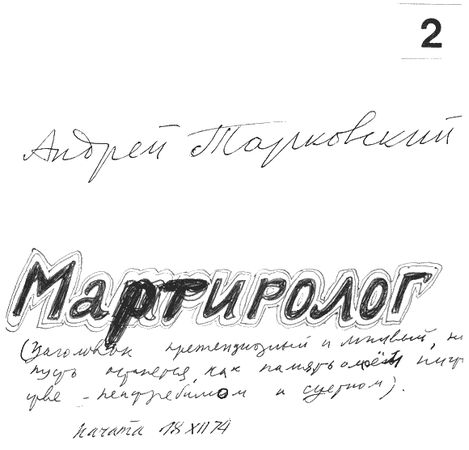 2
Андрей Тарковский
Мартиролог
(Заголовок претенциозный и лживый, но
пусть останется, как память о моём ничто
жестве - неистребимом и суетном).
Начата 18 XII 74